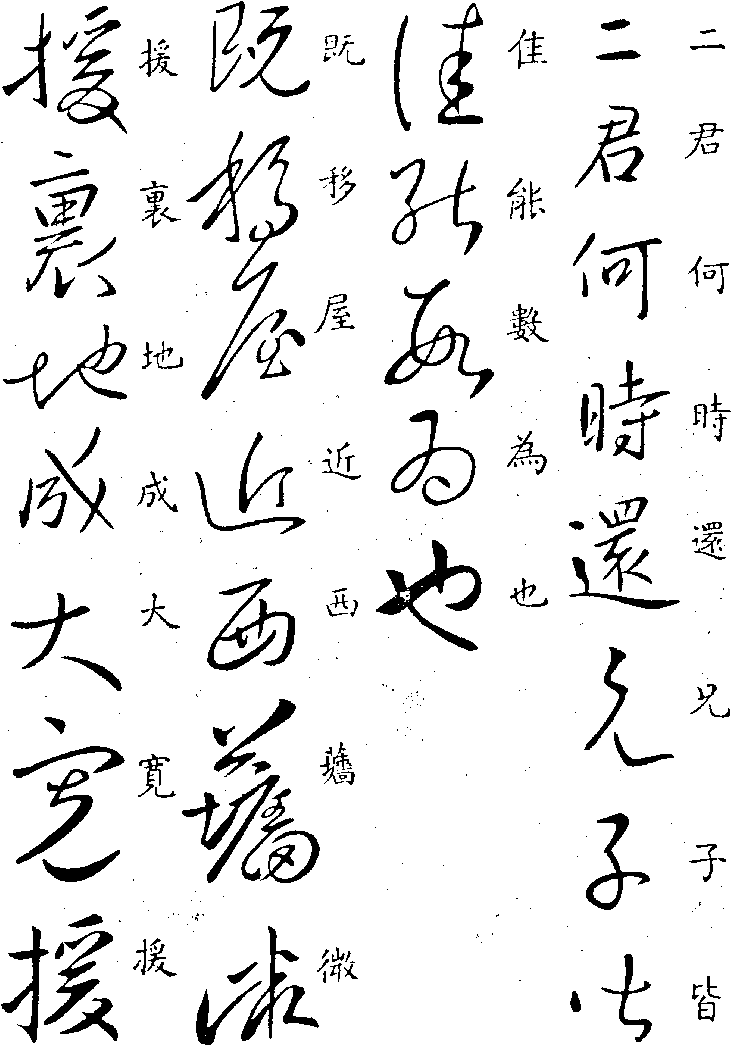 二君何時還兄子皆
二君何時還兄子皆
佳能數為也
佳能數為也
既移屋近西墻微
既移屋近西墻微
援裏地成大寬援
援裏地成大寬援